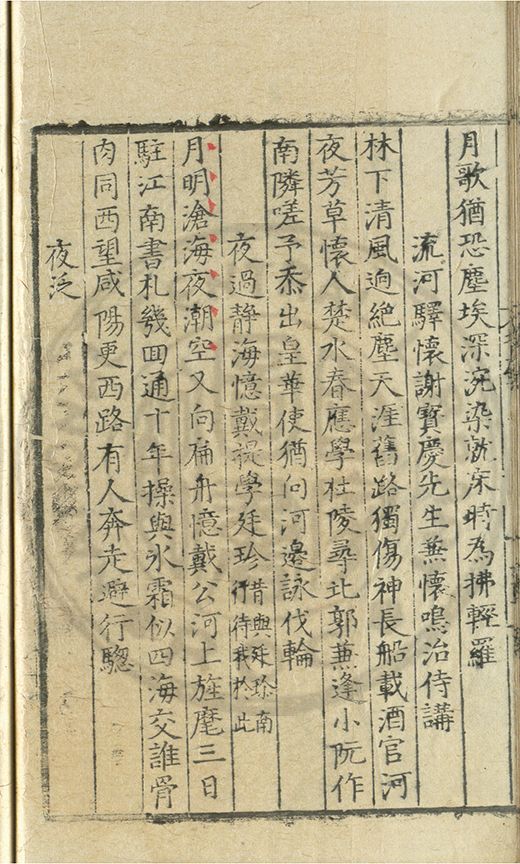 月歌猶恐塵埃深涴染就床時為拂輕羅
流河驛懷謝寶慶先生兼懷鳴治侍講
林下清風逈絶塵天涯舊路獨傷神長船載酒官河
夜芳草懷人楚水春應學杜陵尋北郭兼逢小阮作
南隣嗟予忝出皇華使猶向河邊詠伐輪
夜過静海憶戴提學廷珍昔與廷珍南行待我於此
月明滄海夜潮空又向扁舟憶戴公河上旌麾三日
駐江南書札幾囬通十年操與氷霜似四海交誰骨
肉同西望咸陽更西路有人奔走避行驄
夜泛